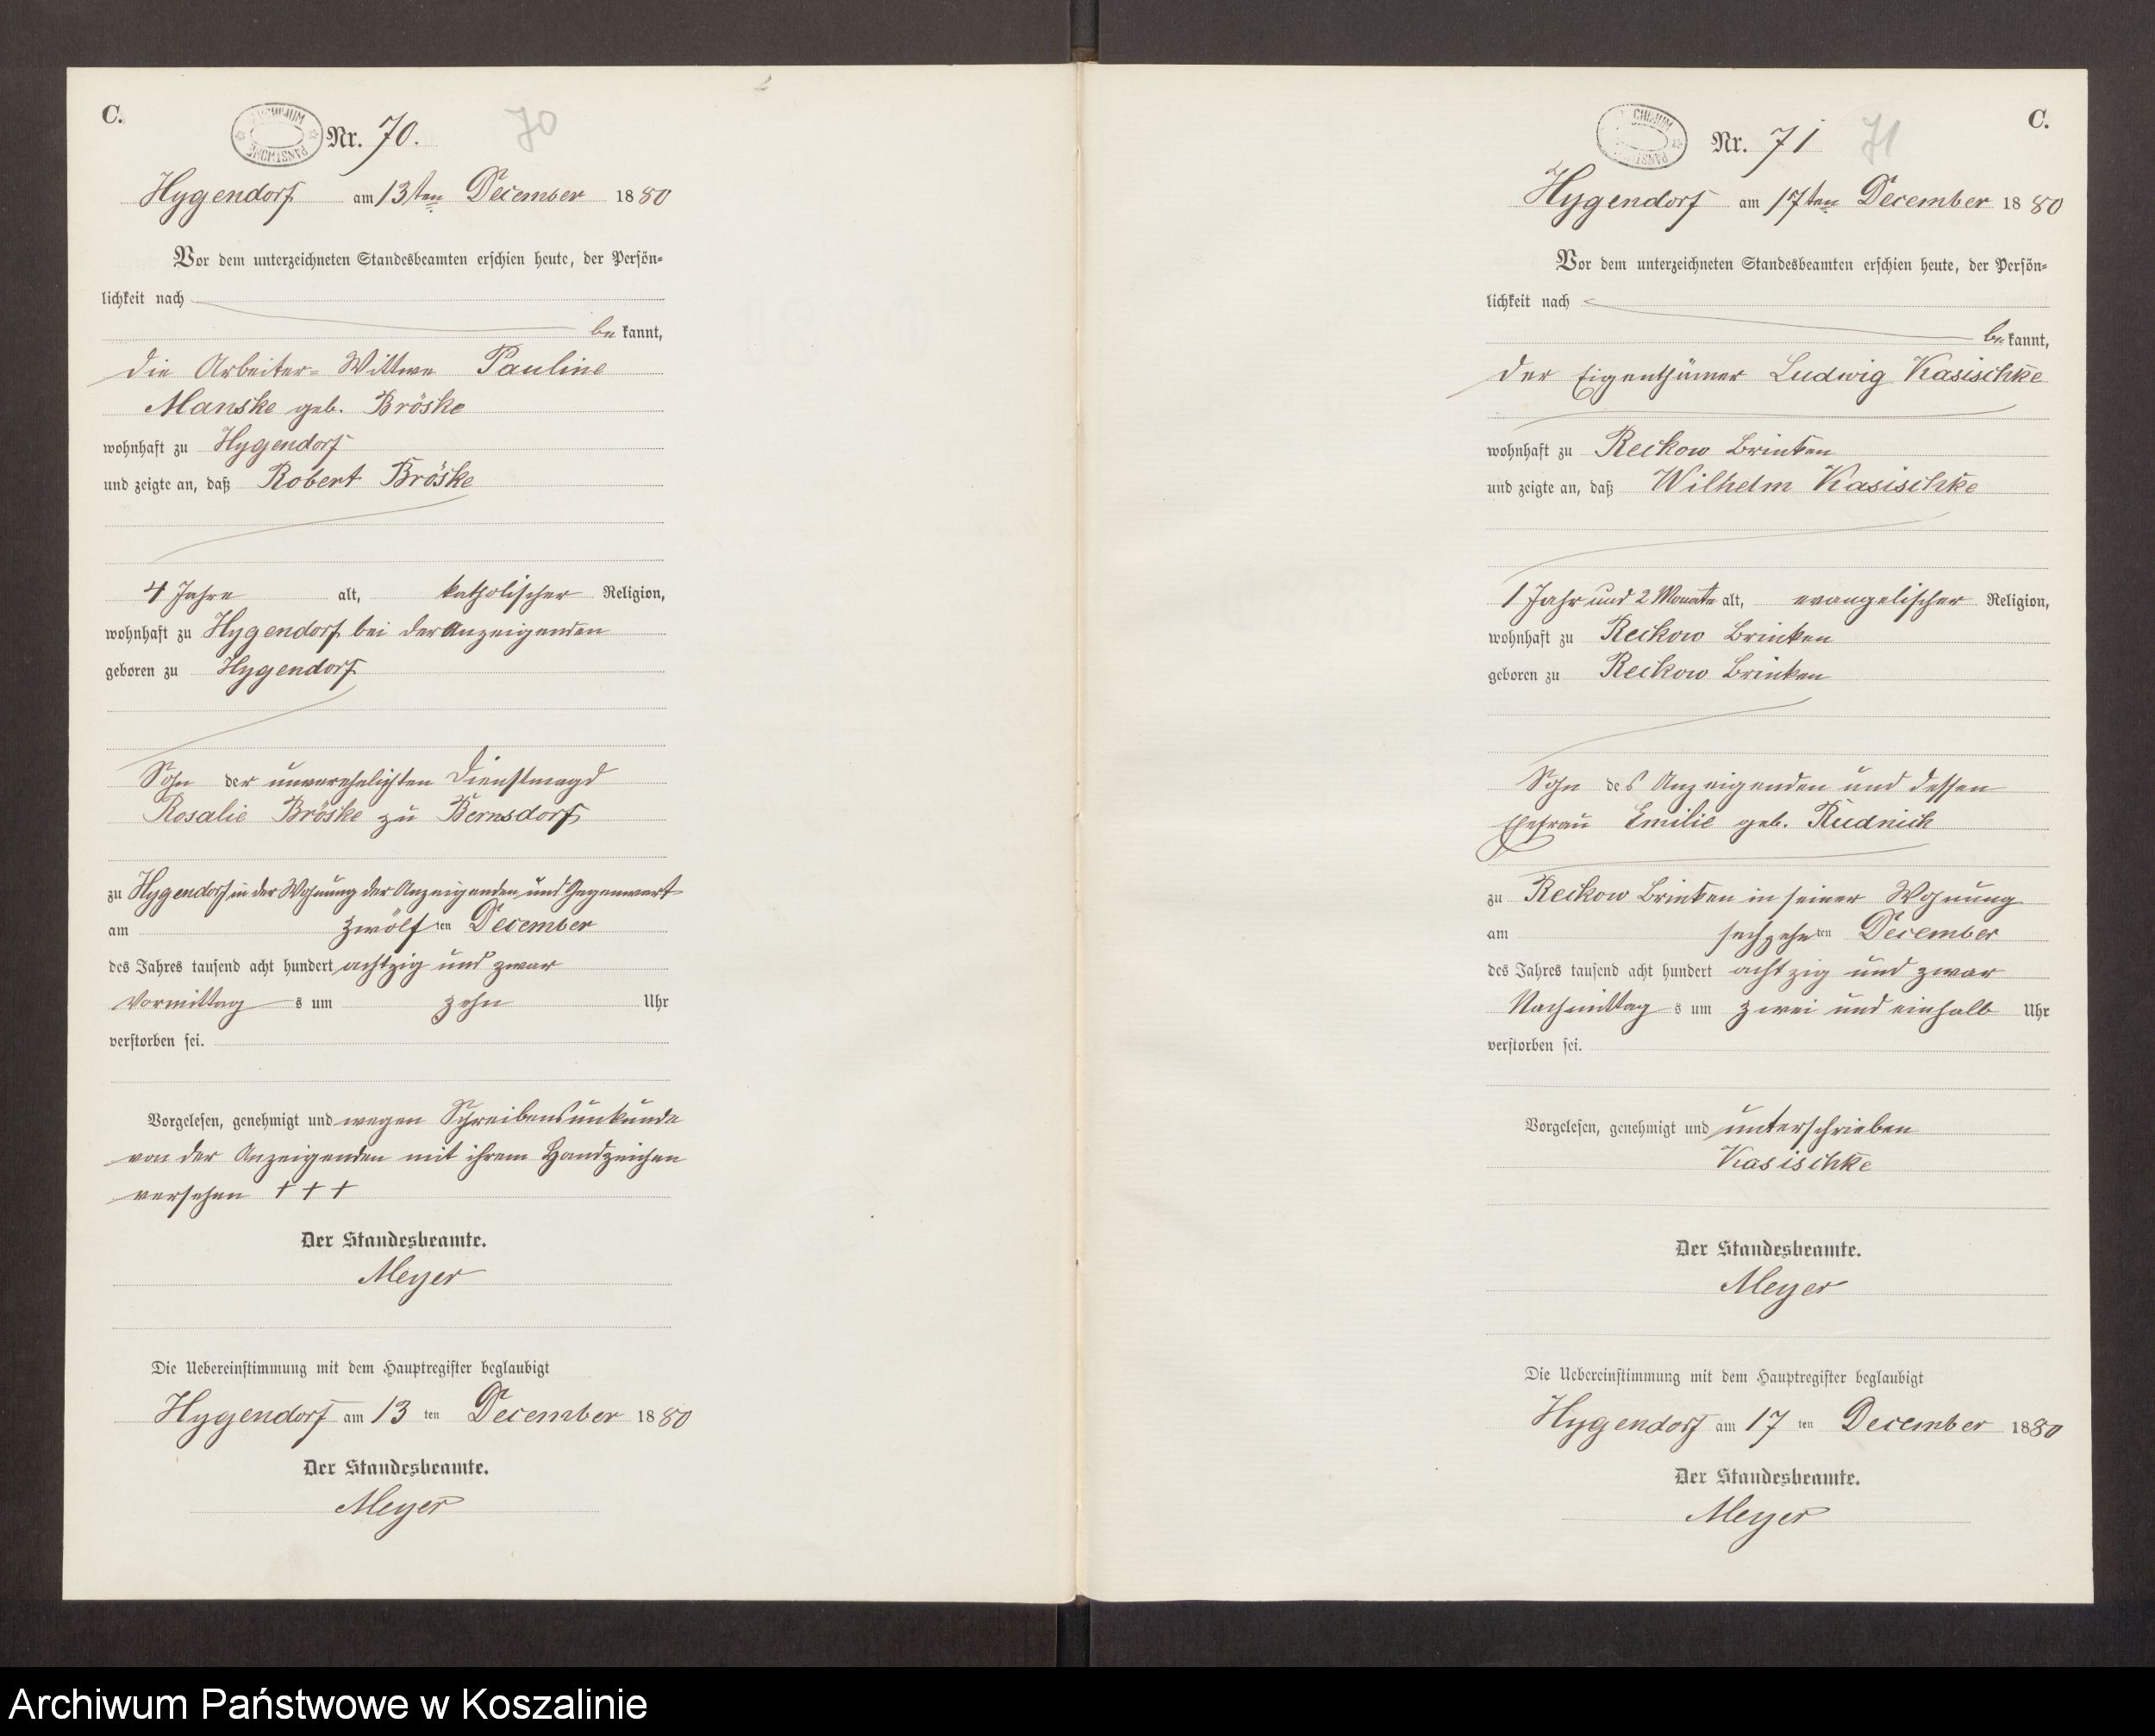 C.
Nr. 70.
70
Hygendorf am 13ten December 1880
Vor dem unterzeichneten Standesbeamten erschien heute, der Persön-
lichkeit nach
be kannt,
die Arbeiter-Wittwe Pauline
Manske geb. Bröske
wohnhaft zu Hygendorf
und zeigte an, daß Robert Bröske
4 Jahre alt, katholischer Religion,
wohnhaft zu Hygendorf bei der Anzeigenden
geboren zu Hygendorf
Sohn der unverehelichten Dienstmagd
Rosalie Bröske zu Bernsdorf
zu Hygendorf in der Wohnung der Anzeigenden und Gegenwart
am zwölf ten December
des Jahres tausend acht hundert achtzig und zwar
Vormittag s um zehn Uhr
verstorben sei.
Vorgelesen, genehmigt und wegen Schreibensunkunde
von der Anzeigenden mit ihrem Handzeichen
versehen + + +
Der Standesbeamte.
Meyer
Die Uebereinstimmung mit dem Hauptregister beglaubigt
Hygendorf am 13 ten December 1880
Der Standesbeamte.
Meyer
C.
Nr. 71
71
Hygendorf am 17ten December 1880
Vor dem unterzeichneten Standesbeamten erschien heute, der Persön-
lichkeit nach
be kannt,
der Eigenthümer Ludwig Kasischke
wohnhaft zu Reckow Brinken
und zeigte an, daß Wilhelm Kasischke
1 Jahr und 2 Monate alt, evangelischer Religion,
wohnhaft zu Reckow Brinken
geboren zu Reckow Brinken
Sohn des Anzeigenden und dessen
Ehefrau Emilie geb. Rudnick
zu Reckow Brinken in seiner Wohnung
am sechzehn ten December
des Jahres tausend acht hundert achtzig und zwar
Nachmittag s um zwei und einhalb Uhr
verstorben sei.
Vorgelesen, genehmigt und unterschrieben
Kasischke
Der Standesbeamte.
Meyer
Die Uebereinstimmung mit dem Hauptregister beglaubigt
Hygendorf am 17 ten December 1880
Der Standesbeamte.
Meyer
Archiwum Państwowe w Koszalinie